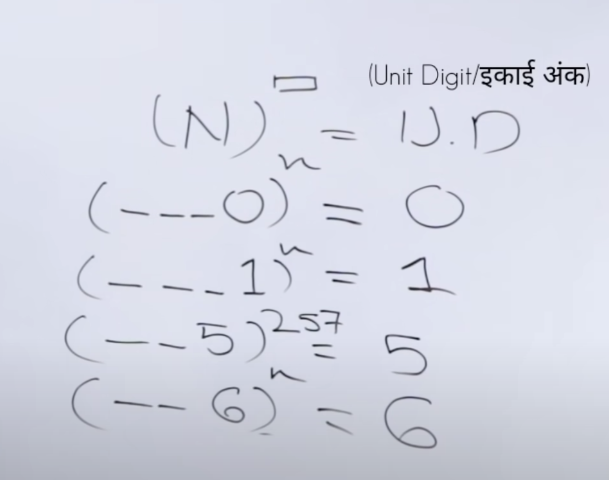 (Unit Digit/इकाई अंक)
(N)^□ = U.D
(---0)^n = 0
(---1)^n = 1
(--5)^257 = 5
(--6)^n = 6